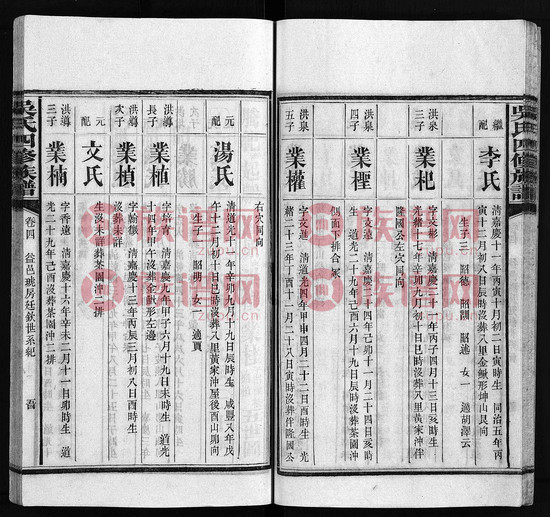 吳氏四修族譜
繼配
李氏
清嘉慶十一年丙寅十月十一日辰時生 同治五年丙
寅十二月初八日寅時沒葬八里金鍁形坤山艮向
生子三 昭德 昭訓 昭遜 女一 適胡澤云
洪泉
三子
業杞
字文彬 清嘉慶二十一年丙子四月十三日亥時生
光緒 年 月初十日巳時沒葬八里黃家沖伴
隆國公左穴同向
洪泉
四子
業檉
字文茂 清嘉慶二十四年己卯十一月二十四日亥時
生 道光二十九年己酉六月 日 時沒葬茶園沖
側面下排合冢
洪泉
五子
業權
字文進 清道光四年甲申四月二十二日酉時生 光
緒二十三年丁酉十一月二十八日寅時沒葬伴隆國公
右穴同向
元配
湯氏
清道光十一年辛卯九月十九日辰時生 咸豐八年戊
午十二月初十日辰時沒葬八里黃家沖屋後酉山卯向
生子一 昭 女一 適賈
洪導
長子
業植
字培育 清嘉慶九年甲子六月十九日未時生 道光
十四年甲午沒葬金鍁形左邊
洪導
次子
業楨
字翰儀 清嘉慶十三年丙辰三月初八日酉時生
沒葬未詳
元配
文氏
生沒未詳葬茶園沖二排
洪導
三子
業楠
字香遠 清嘉慶十六年辛未二月十一日卯時生 道
光二十九年己酉沒葬茶園沖二排
吳氏四修族譜
卷四 益邑琥房廷欽世系紀
族譜網